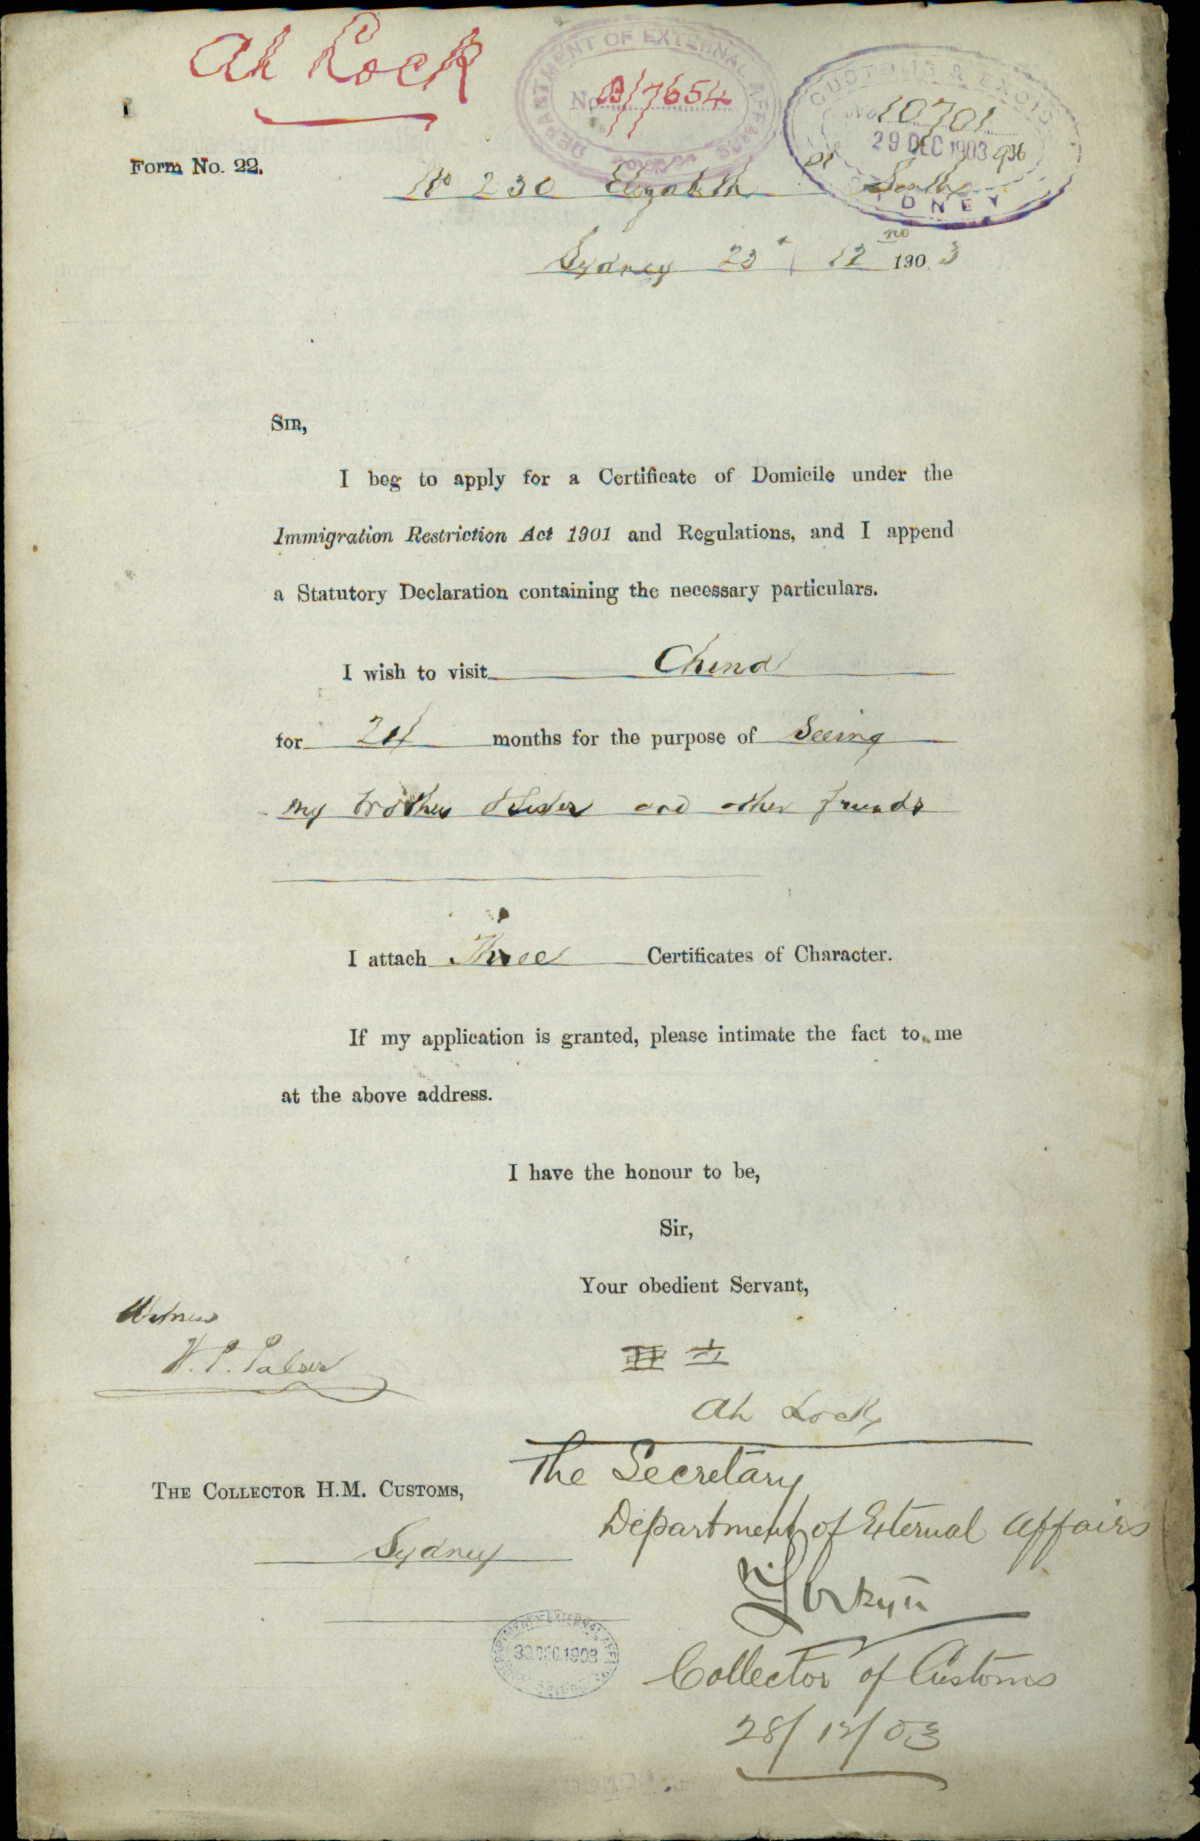 Ah Lock
DEPARTMENT OF EXTERNAL AFFAIRS
No. 03/7654
CUSTOMS & EXCISE
No. 10701
29 DEC 1903 936
SYDNEY
Form No. 22.
No 230 Elizabeth St South
Sydney 23 12 1903
SIR,
I beg to apply for a Certificate of Domicile under the
Immigration Restriction Act 1901 and Regulations, and I append
a Statutory Declaration containing the necessary particulars.
I wish to visit China
for 24 months for the purpose of Seeing
my brother & Sister and other friends
I attach Three Certificates of Character.
If my application is granted, please intimate the fact to me
at the above address.
I have the honour to be,
Sir,
Your obedient Servant,
Witness
Ah Lock
The Secretary
THE COLLECTOR H.M. CUSTOMS,
Department of External Affairs
Sydney
30 DEC 1903
Collector of Customs
28/12/03